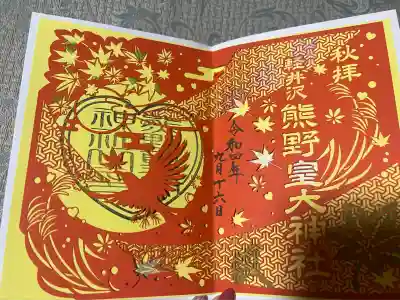 秋拝
軽井沢
熊野皇大神社
令和四年
九月十六日